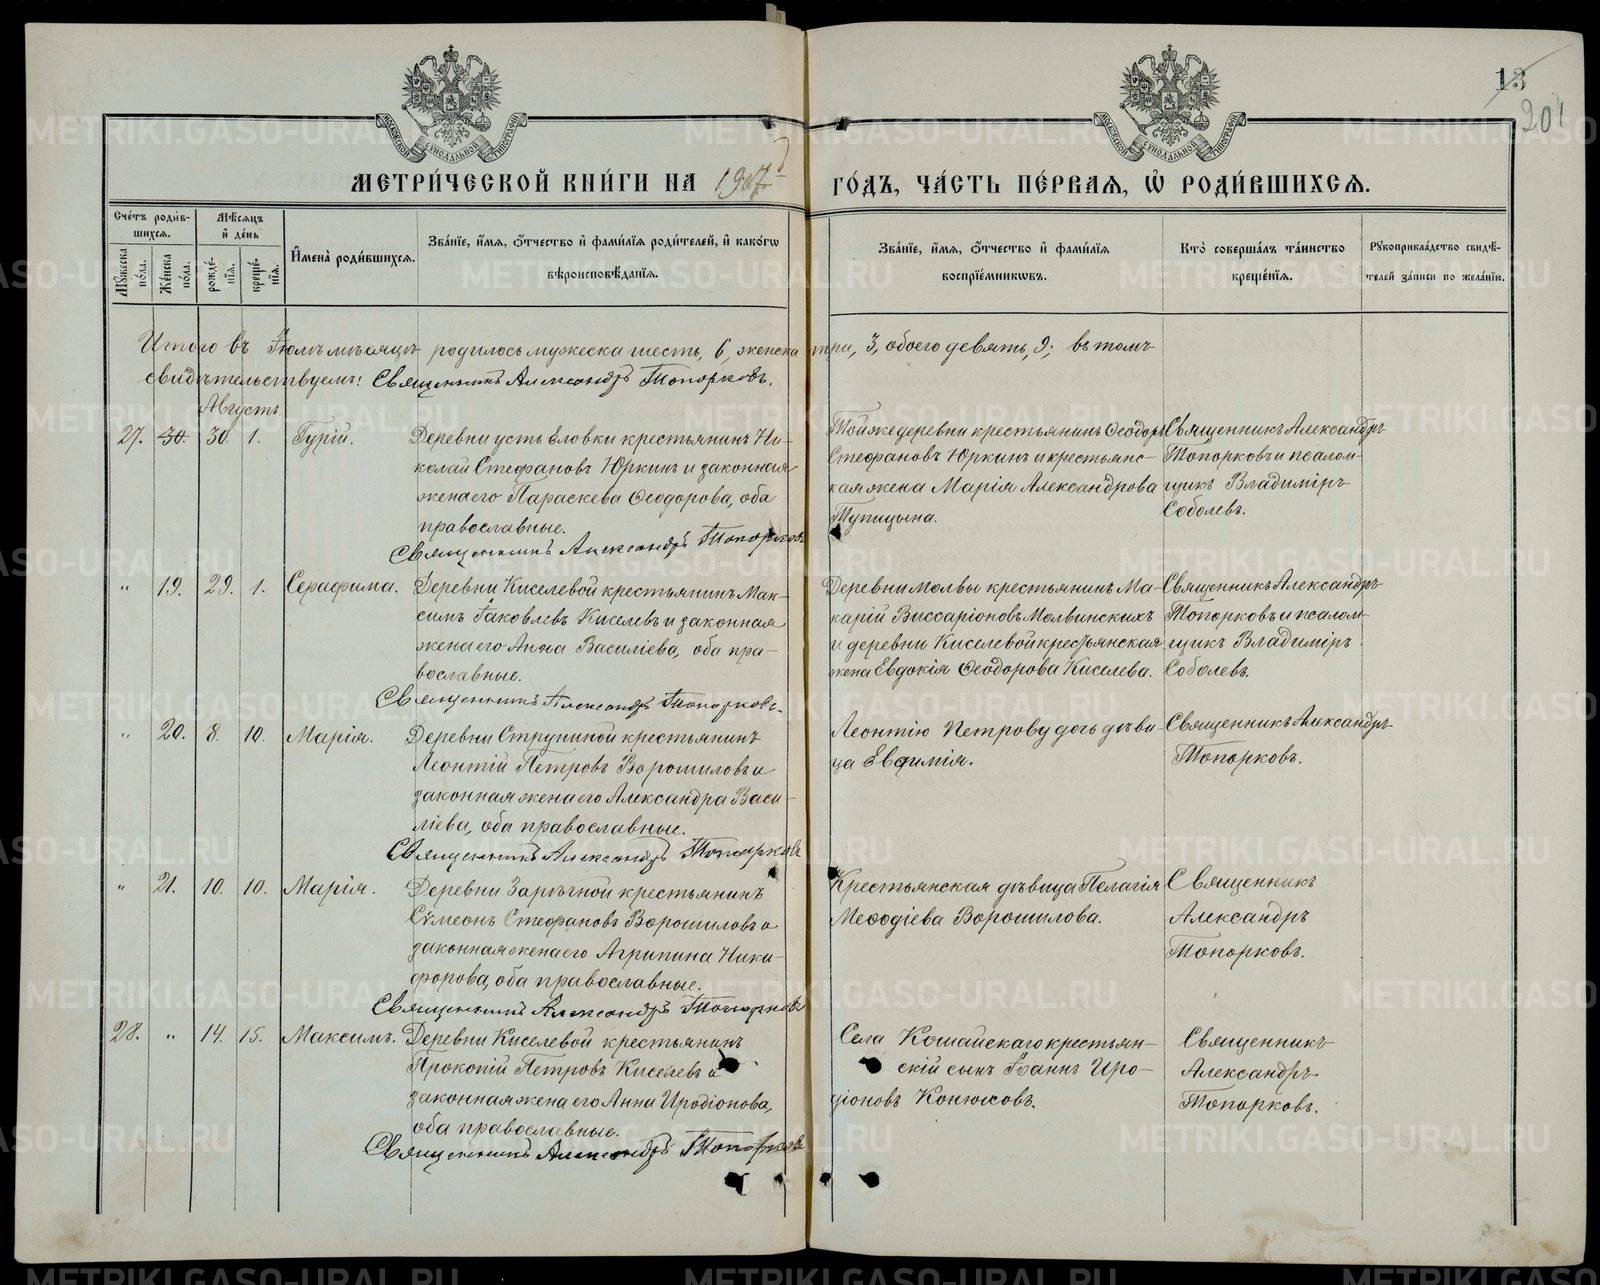 13
201
МОСКОВСКОЙ СѴНОДАЛЬНОЙ ТИПОГРАФІИ
МОСКОВСКОЙ СѴНОДАЛЬНОЙ ТИПОГРАФІИ
МЕТРИ́ЧЕСКОЙ КНИ́ГИ НА 1907 ГО́ДЪ, ЧА́СТЬ ПЕ́РВАЯ, Ѡ҆ РОДИ́ВШИХСѦ.
Сче́тъ роди́в-
шихсѧ.
Мꙋжеска по́ла.
Же́нска по́ла.
Мѣ́сѧцъ и҆ де́нь
рожде́-нїѧ.
креще́-нїѧ.
И҆мена̀ роди́вшихсѧ.
Зва́нїе, и҆́мѧ, ѻ҆́тчество и҆ фами́лїѧ роди́телей, и҆ како́гѡ
вѣроисповѣ́данїѧ.
Зва́нїе, и҆́мѧ, ѻ҆́тчество и҆ фами́лїѧ
воспрїе́мникѡвъ.
Кто̀ соверша́лъ та́инство
креще́нїѧ.
Рꙋкоприкла́дство свидѣ́-
телей за́писи по жела́нїю.
Итого въ Іюлѣ мѣсяцѣ родилось мужеска шесть, 6, женска три, 3, обоего девять, 9; въ томъ
свидѣтельствуемъ: Священникъ Александръ Топорковъ.
Августъ.
27. 30. 30. 1. Гурій. Деревни усть Еловки крестьянинъ Ни-
колай Стефановъ Юркинъ и законная
жена его Параскева Ѳеодорова, оба
православные.
Священникъ Александръ Топорковъ
Той же деревни крестьянинъ Ѳеодоръ
Стефановъ Юркинъ и крестьянс-
кая жена Марія Александрова
Тупицына.
Священникъ Александръ
Топорковъ и псалом-
щикъ Владиміръ
Соболевъ.
" 19. 29. 1. Серафима. Деревни Киселевой крестьянинъ Мак-
симъ Іаковлевъ Киселевъ и законная
жена его Анна Василіева, оба пра-
вославные.
Священникъ Александръ Топорковъ.
Деревни Молвы крестьянинъ Ма-
карій Виссаріоновъ Молвинскихъ
и деревни Киселевой крестьянская
жена Евдокія Ѳеодорова Киселева.
Священникъ Александръ
Топорковъ и псалом-
щикъ Владиміръ
Соболевъ.
" 20. 8. 10. Марія. Деревни Струниной крестьянинъ
Леонтій Петровъ Ворошиловъ и
законная жена его Александра Васи-
ліева, оба православные.
Священникъ Александръ Топорковъ
Леонтію Петрову дочь дѣви-
ца Евфимія.
Священникъ Александръ
Топорковъ.
" 21. 10. 10. Марія. Деревни Зарѣчной крестьянинъ
Сѵмеонъ Стефановъ Ворошиловъ и
законная жена его Агрипина Ники-
форова, оба православные.
Священникъ Александръ Топорковъ
Крестьянская дѣвица Пелагія
Меѳодіева Ворошилова.
Священникъ
Александръ
Топорковъ.
28. " 14. 15. Максимъ. Деревни Киселевой крестьянинъ
Прокопій Петровъ Киселевъ и
законная жена его Анна Иродіонова,
оба православные.
Священникъ Александръ Топорковъ
Села Кошайскаго крестьян-
скій сынъ Іоаннъ Иро-
діоновъ Конюховъ.
Священникъ
Александръ
Топорковъ.
METRIKI.GASO-URAL.RU